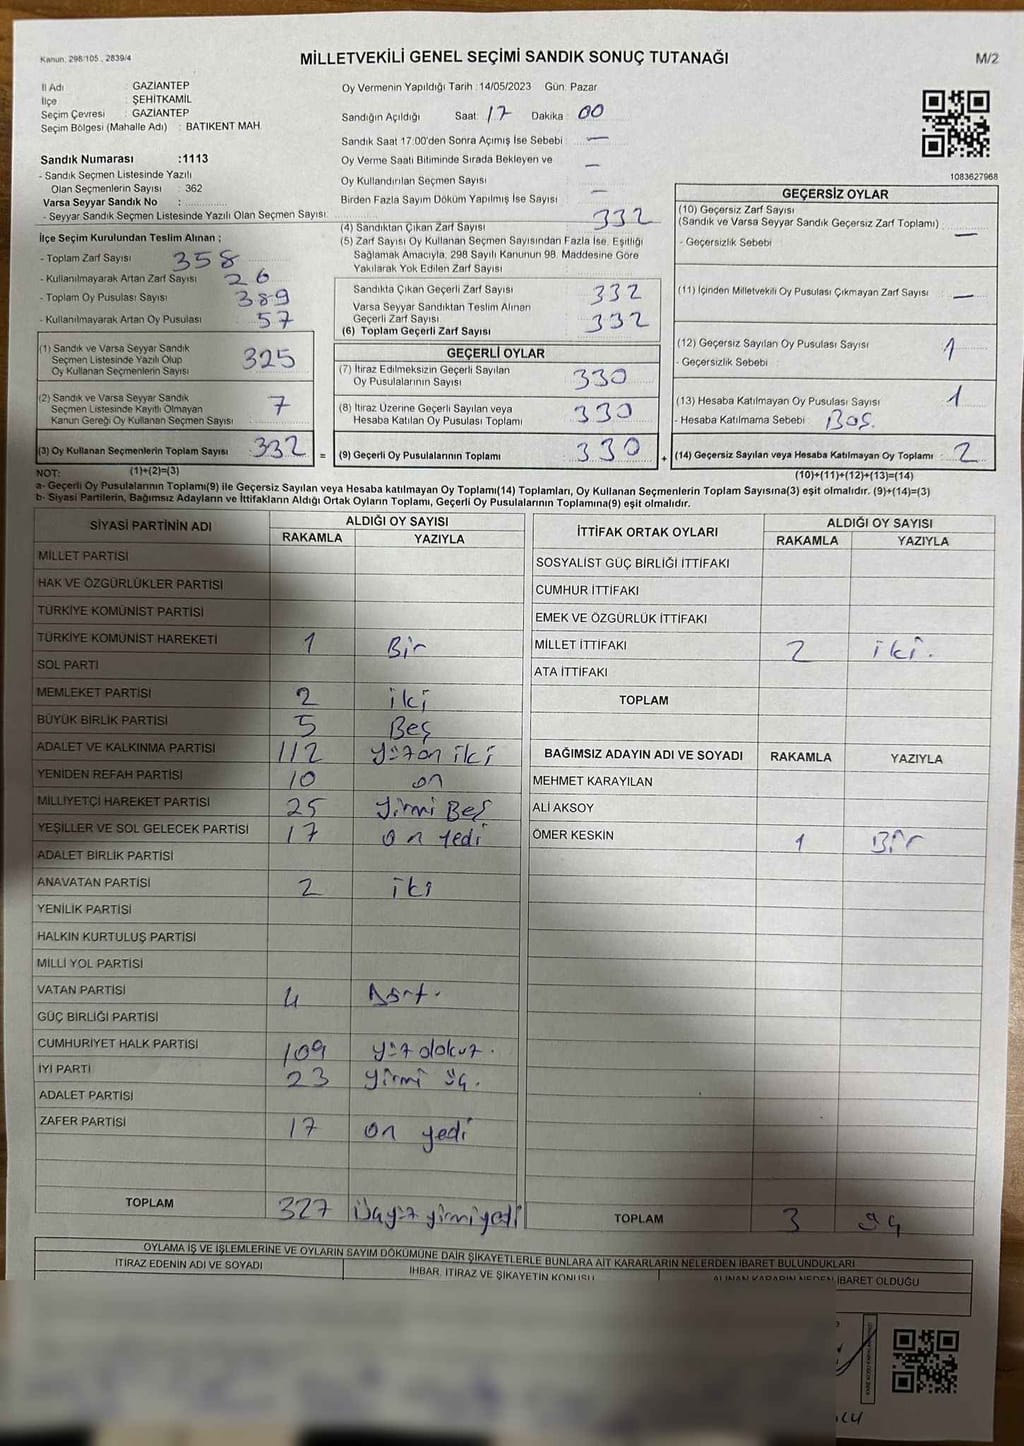 Kanun: 298/105 , 2839/4
MİLLETVEKİLİ GENEL SEÇİMİ SANDIK SONUÇ TUTANAĞI
M/2
İl Adı : GAZİANTEP
İlçe : ŞEHİTKAMİL
Seçim Çevresi : GAZİANTEP
Seçim Bölgesi (Mahalle Adı) : BATIKENT MAH.
Oy Vermenin Yapıldığı Tarih :14/05/2023 Gün: Pazar
Sandığın Açıldığı Saat: 17 Dakika: 00
Sandık Saat 17:00'den Sonra Açımış İse Sebebi : —
Oy Verme Saati Bitiminde Sırada Bekleyen ve
Oy Kullandırılan Seçmen Sayısı : —
Birden Fazla Sayım Döküm Yapılmış İse Sayısı : —
1083627968
Sandık Numarası :1113
- Sandık Seçmen Listesinde Yazılı
Olan Seçmenlerin Sayısı : 362
Varsa Seyyar Sandık No :
- Seyyar Sandık Seçmen Listesinde Yazılı Olan Seçmen Sayısı:
İlçe Seçim Kurulundan Teslim Alınan ;
- Toplam Zarf Sayısı : 358
- Kullanılmayarak Artan Zarf Sayısı : 26
- Toplam Oy Pusulası Sayısı : 389
- Kullanılmayarak Artan Oy Pusulası : 57
(1) Sandık ve Varsa Seyyar Sandık
Seçmen Listesinde Yazılı Olup
Oy Kullanan Seçmenlerin Sayısı : 325
(2) Sandık ve Varsa Seyyar Sandık
Seçmen Listesinde Kayıtlı Olmayan
Kanun Gereği Oy Kullanan Seçmen Sayısı : 7
(3) Oy Kullanan Seçmenlerin Toplam Sayısı : 332 =
(4) Sandıktan Çıkan Zarf Sayısı : 332
(5) Zarf Sayısı Oy Kullanan Seçmen Sayısından Fazla İse, Eşitliği
Sağlamak Amacıyla, 298 Sayılı Kanunun 98. Maddesine Göre
Yakılarak Yok Edilen Zarf Sayısı :
Sandıkta Çıkan Geçerli Zarf Sayısı : 332
Varsa Seyyar Sandıktan Teslim Alınan
Geçerli Zarf Sayısı : 332
(6) Toplam Geçerli Zarf Sayısı
GEÇERLİ OYLAR
(7) İtiraz Edilmeksizin Geçerli Sayılan
Oy Pusulalarının Sayısı : 330
(8) İtiraz Üzerine Geçerli Sayılan veya
Hesaba Katılan Oy Pusulası Toplamı : 330
(9) Geçerli Oy Pusulalarının Toplamı : 330 +
GEÇERSİZ OYLAR
(10) Geçersiz Zarf Sayısı
(Sandık ve Varsa Seyyar Sandık Geçersiz Zarf Toplamı) : —
- Geçersizlik Sebebi :
(11) İçinden Milletvekili Oy Pusulası Çıkmayan Zarf Sayısı : —
(12) Geçersiz Sayılan Oy Pusulası Sayısı : 1
- Geçersizlik Sebebi :
(13) Hesaba Katılmayan Oy Pusulası Sayısı : 1
- Hesaba Katılmama Sebebi : Boş.
(14) Geçersiz Sayılan veya Hesaba Katılmayan Oy Toplamı : 2
NOT: (1)+(2)=(3)
(10)+(11)+(12)+(13)=(14)
a- Geçerli Oy Pusulalarının Toplamı(9) ile Geçersiz Sayılan veya Hesaba katılmayan Oy Toplamı(14) Toplamları, Oy Kullanan Seçmenlerin Toplam Sayısına(3) eşit olmalıdır. (9)+(14)=(3)
b- Siyasi Partilerin, Bağımsız Adayların ve İttifakların Aldığı Ortak Oyların Toplamı, Geçerli Oy Pusulalarının Toplamına(9) eşit olmalıdır.
SİYASİ PARTİNİN ADI ALDIĞI OY SAYISI
RAKAMLA YAZIYLA
MİLLET PARTİSİ
HAK VE ÖZGÜRLÜKLER PARTİSİ
TÜRKİYE KOMÜNİST PARTİSİ
TÜRKİYE KOMÜNİST HAREKETİ 1 Bir
SOL PARTİ
MEMLEKET PARTİSİ 2 iki
BÜYÜK BİRLİK PARTİSİ 5 Beş
ADALET VE KALKINMA PARTİSİ 112 yüzon iki
YENİDEN REFAH PARTİSİ 10 on
MİLLİYETÇİ HAREKET PARTİSİ 25 yirmi Beş
YEŞİLLER VE SOL GELECEK PARTİSİ 17 on yedi
ADALET BİRLİK PARTİSİ
ANAVATAN PARTİSİ 2 iki
YENİLİK PARTİSİ
HALKIN KURTULUŞ PARTİSİ
MİLLİ YOL PARTİSİ
VATAN PARTİSİ 4 Dört.
GÜÇ BİRLİĞİ PARTİSİ
CUMHURİYET HALK PARTİSİ 109 yüz dokuz.
İYİ PARTİ 23 yirmi üç.
ADALET PARTİSİ
ZAFER PARTİSİ 17 on yedi
TOPLAM 327 üçyüz yirmiyedi
İTTİFAK ORTAK OYLARI ALDIĞI OY SAYISI
RAKAMLA YAZIYLA
SOSYALİST GÜÇ BİRLİĞİ İTTİFAKI
CUMHUR İTTİFAKI
EMEK VE ÖZGÜRLÜK İTTİFAKI
MİLLET İTTİFAKI 2 iki.
ATA İTTİFAKI
TOPLAM
BAĞIMSIZ ADAYIN ADI VE SOYADI RAKAMLA YAZIYLA
MEHMET KARAYILAN
ALİ AKSOY
ÖMER KESKİN 1 Bir
TOPLAM 3 üç
OYLAMA İŞ VE İŞLEMLERİNE VE OYLARIN SAYIM DÖKÜMÜNE DAİR ŞİKAYETLERLE BUNLARA AİT KARARLARIN NELERDEN İBARET BULUNDUKLARI
İTİRAZ EDENİN ADI VE SOYADI
İHBAR, İTİRAZ VE ŞİKAYETİN KONUSU
ALINAN KARARIN NEDEN İBARET OLDUĞU